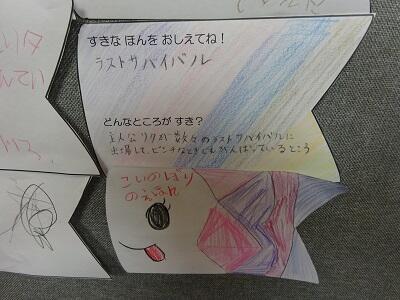 すきな ほんを おしえてね！
ラストサバイバル
どんなところが すき？
主人公リクが数々のラストサバイバルに
出場して、ピンチなときでもがんばっているところ
こいのぼり
のえほん